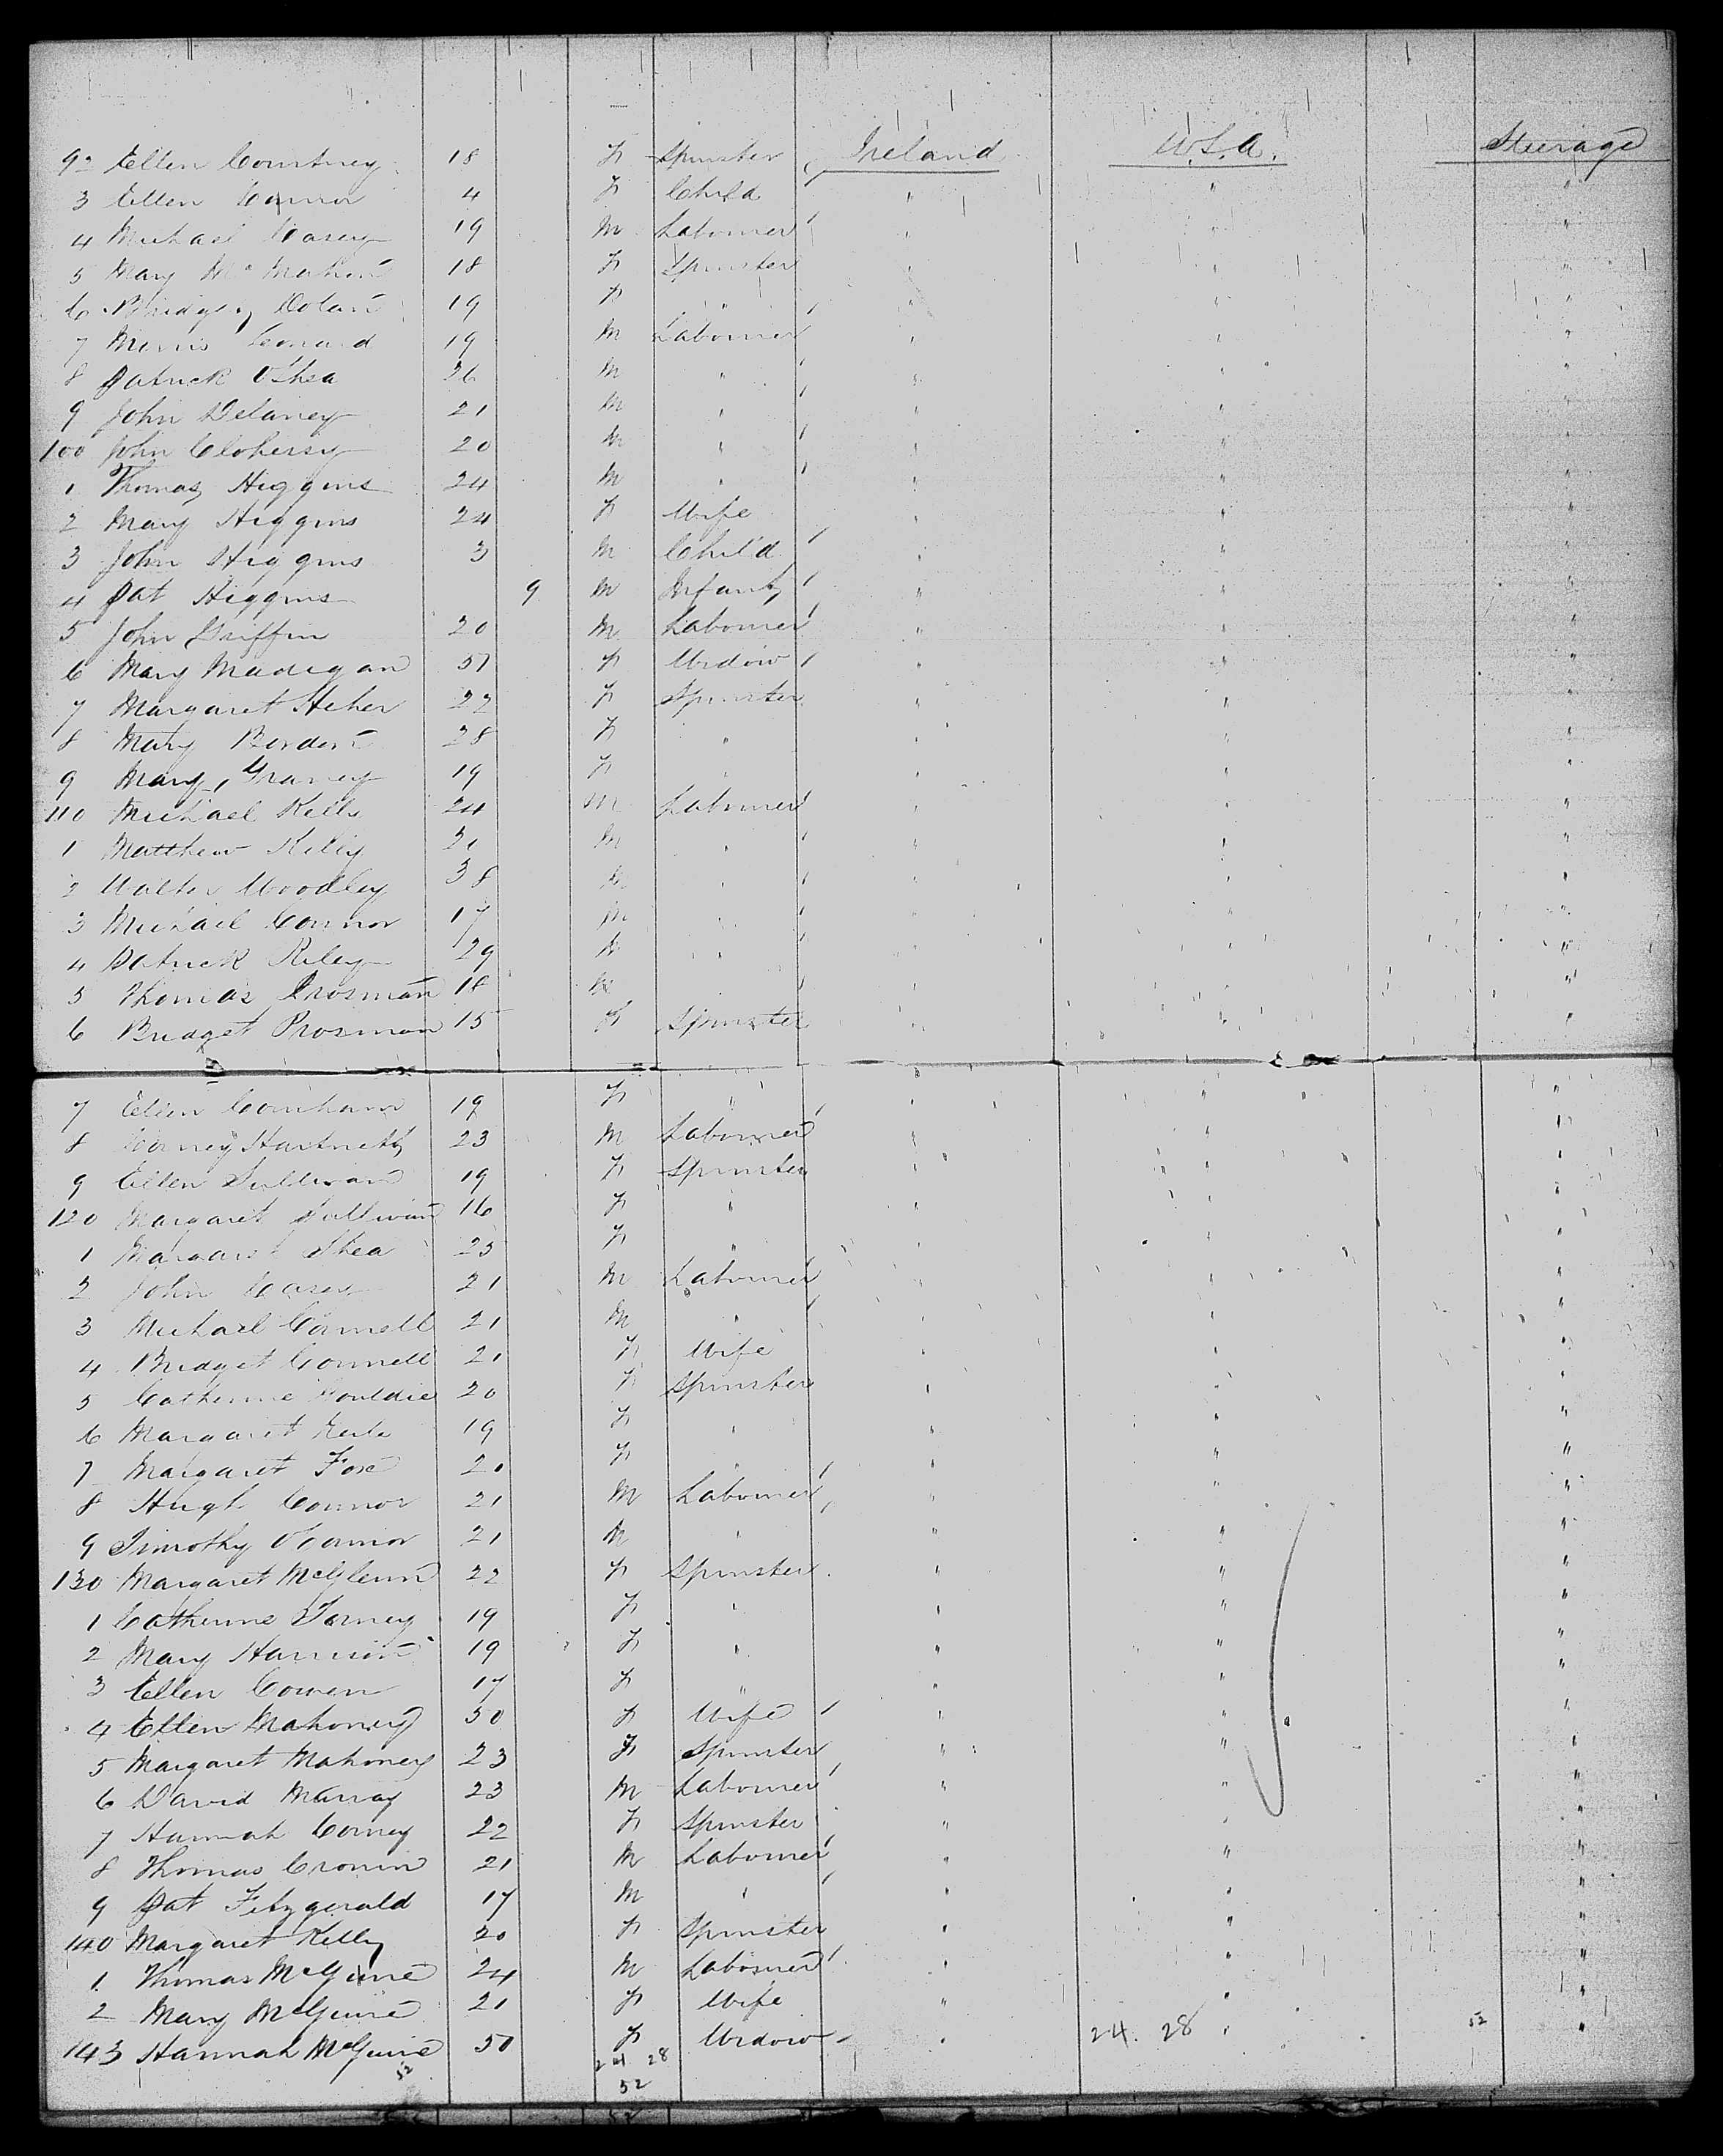 92 Ellen Courtney 18 F Spinster Ireland U.S.A. Steerage
3 Ellen Connor 4 F Child " " "
4 Michael Casey 19 M Labourer " " "
5 Mary McMahon 18 F Spinster " " "
6 Bridget Dolan 19 F " " " "
7 Morris Leonard 19 M Labourer " " "
8 Patrick O'Shea 26 M " " " "
9 John Delaney 21 M " " " "
100 John Clohersy 20 M " " " "
1 Thomas Higgins 24 M " " " "
2 Mary Higgins 24 F Wife " " "
3 John Higgins 3 M Child " " "
4 Pat Higgins 9 M Infant " " "
5 John Griffin 20 M Labourer " " "
6 Mary Madigan 51 F Widow " " "
7 Margaret Heher 22 F Spinster " " "
8 Mary 28 F " " " "
9 Mary Graney 19 F " " " "
110 Michael Kelly 24 M Labourer " " "
1 Matthew Kelly 21 M " " " "
2 Walter Woodley 38 M " " " "
3 Michael Connor 17 M " " " "
4 Patrick Riley 29 M " " " "
5 Thomas Prosman 18 M " " " "
6 Bridget Prosman 15 F Spinster " " "
7 Ellen 19 F " " " "
8 Hartnett 23 M Labourer " " "
9 Ellen Sullivan 19 F Spinster " " "
120 Margaret Sullivan 16 F " " " "
1 Margaret Shea 25 F " " " "
2 John Casey 21 M Labourer " " "
3 Michael Connell 21 M " " " "
4 Bridget Connell 21 F Wife " " "
5 Catherine Gouldie 20 F Spinster " " "
6 Margaret 19 F " " " "
7 Margaret Fox 20 F " " " "
8 Hugh Connor 21 M Labourer " " "
9 Timothy O'Connor 21 M " " " "
130 Margaret McGlenn 22 F Spinster " " "
1 Catherine Torney 19 F " " " "
2 Mary Harrison 19 F " " " "
3 Ellen Cowen 17 F " " " "
4 Ellen Mahoney 50 F Wife " " "
5 Margaret Mahoney 23 F Spinster " " "
6 David Murray 23 M Labourer " " "
7 Hannah Corney 22 F Spinster " " "
8 Thomas Cronin 21 M Labourer " " "
9 Pat Fitzgerald 17 M " " " "
140 Margaret Kelly 20 F Spinster " " "
1 Thomas McGuire 24 M Labourer " " "
2 Mary McGuire 21 F Wife " " "
143 Hannah McGuire 50 F Widow " 24. 28 " 52 "
52 24 28
52